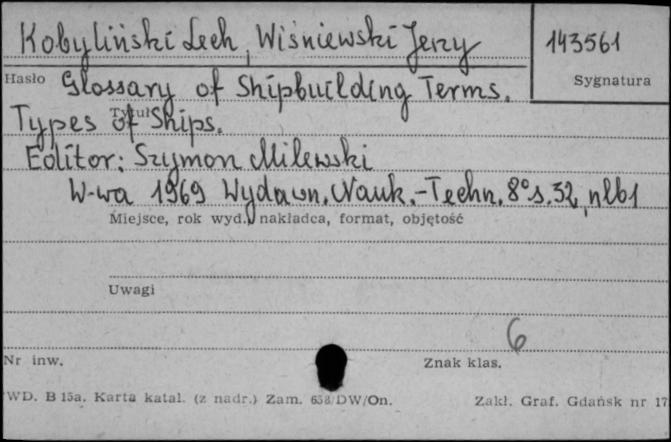 Kobyliński Lech, Wiśniewski Jerzy
143561
Hasło
Sygnatura
Glossary of Shipbuilding Terms.
Tytuł
Types of Ships.
Editor: Szymon Milewski
W-wa 1969 Wydawn. Nauk.-Techn. 8° s. 32, nlb 1
Miejsce, rok wyd., nakładca, format, objętość
Uwagi
6
Nr inw.
Znak klas.
WD. B 15a. Karta katal. (z nadr.) Zam. 638/DW/On.
Zakł. Graf. Gdańsk nr 17